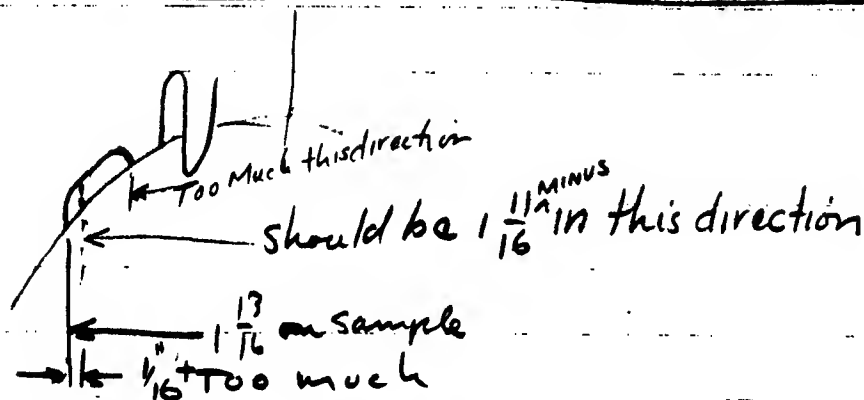 Too Much this direction
should be 1 11/16 MINUS in this direction
1 13/16 on sample
1/16"+ Too much